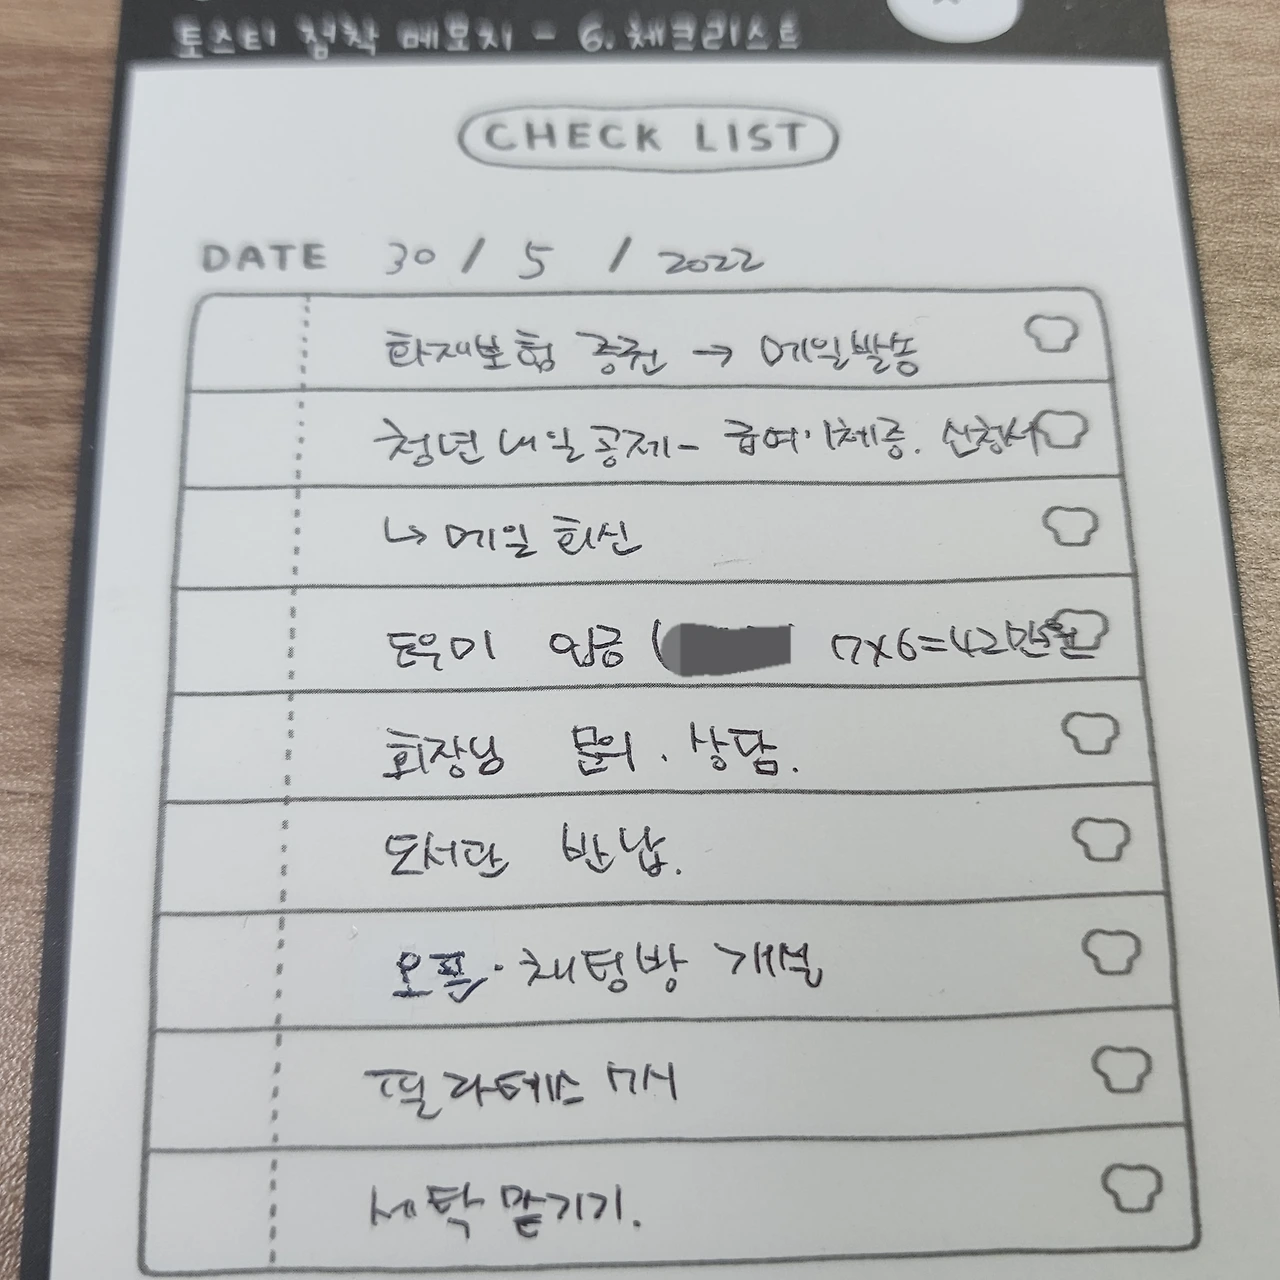 토스티 점착 메모지 - 6. 체크리스트
CHECK LIST
DATE 30 / 5 / 2022
화재보험 증권 → 메일발송
청년내일공제 - 급여이체증. 신청서
↳ 메일 회신
도우미 입금 ( 7x6=42만원
회장님 문의. 상담.
도서관 반납.
오픈·채팅방 개설
필라테스 7시
세탁 맡기기.